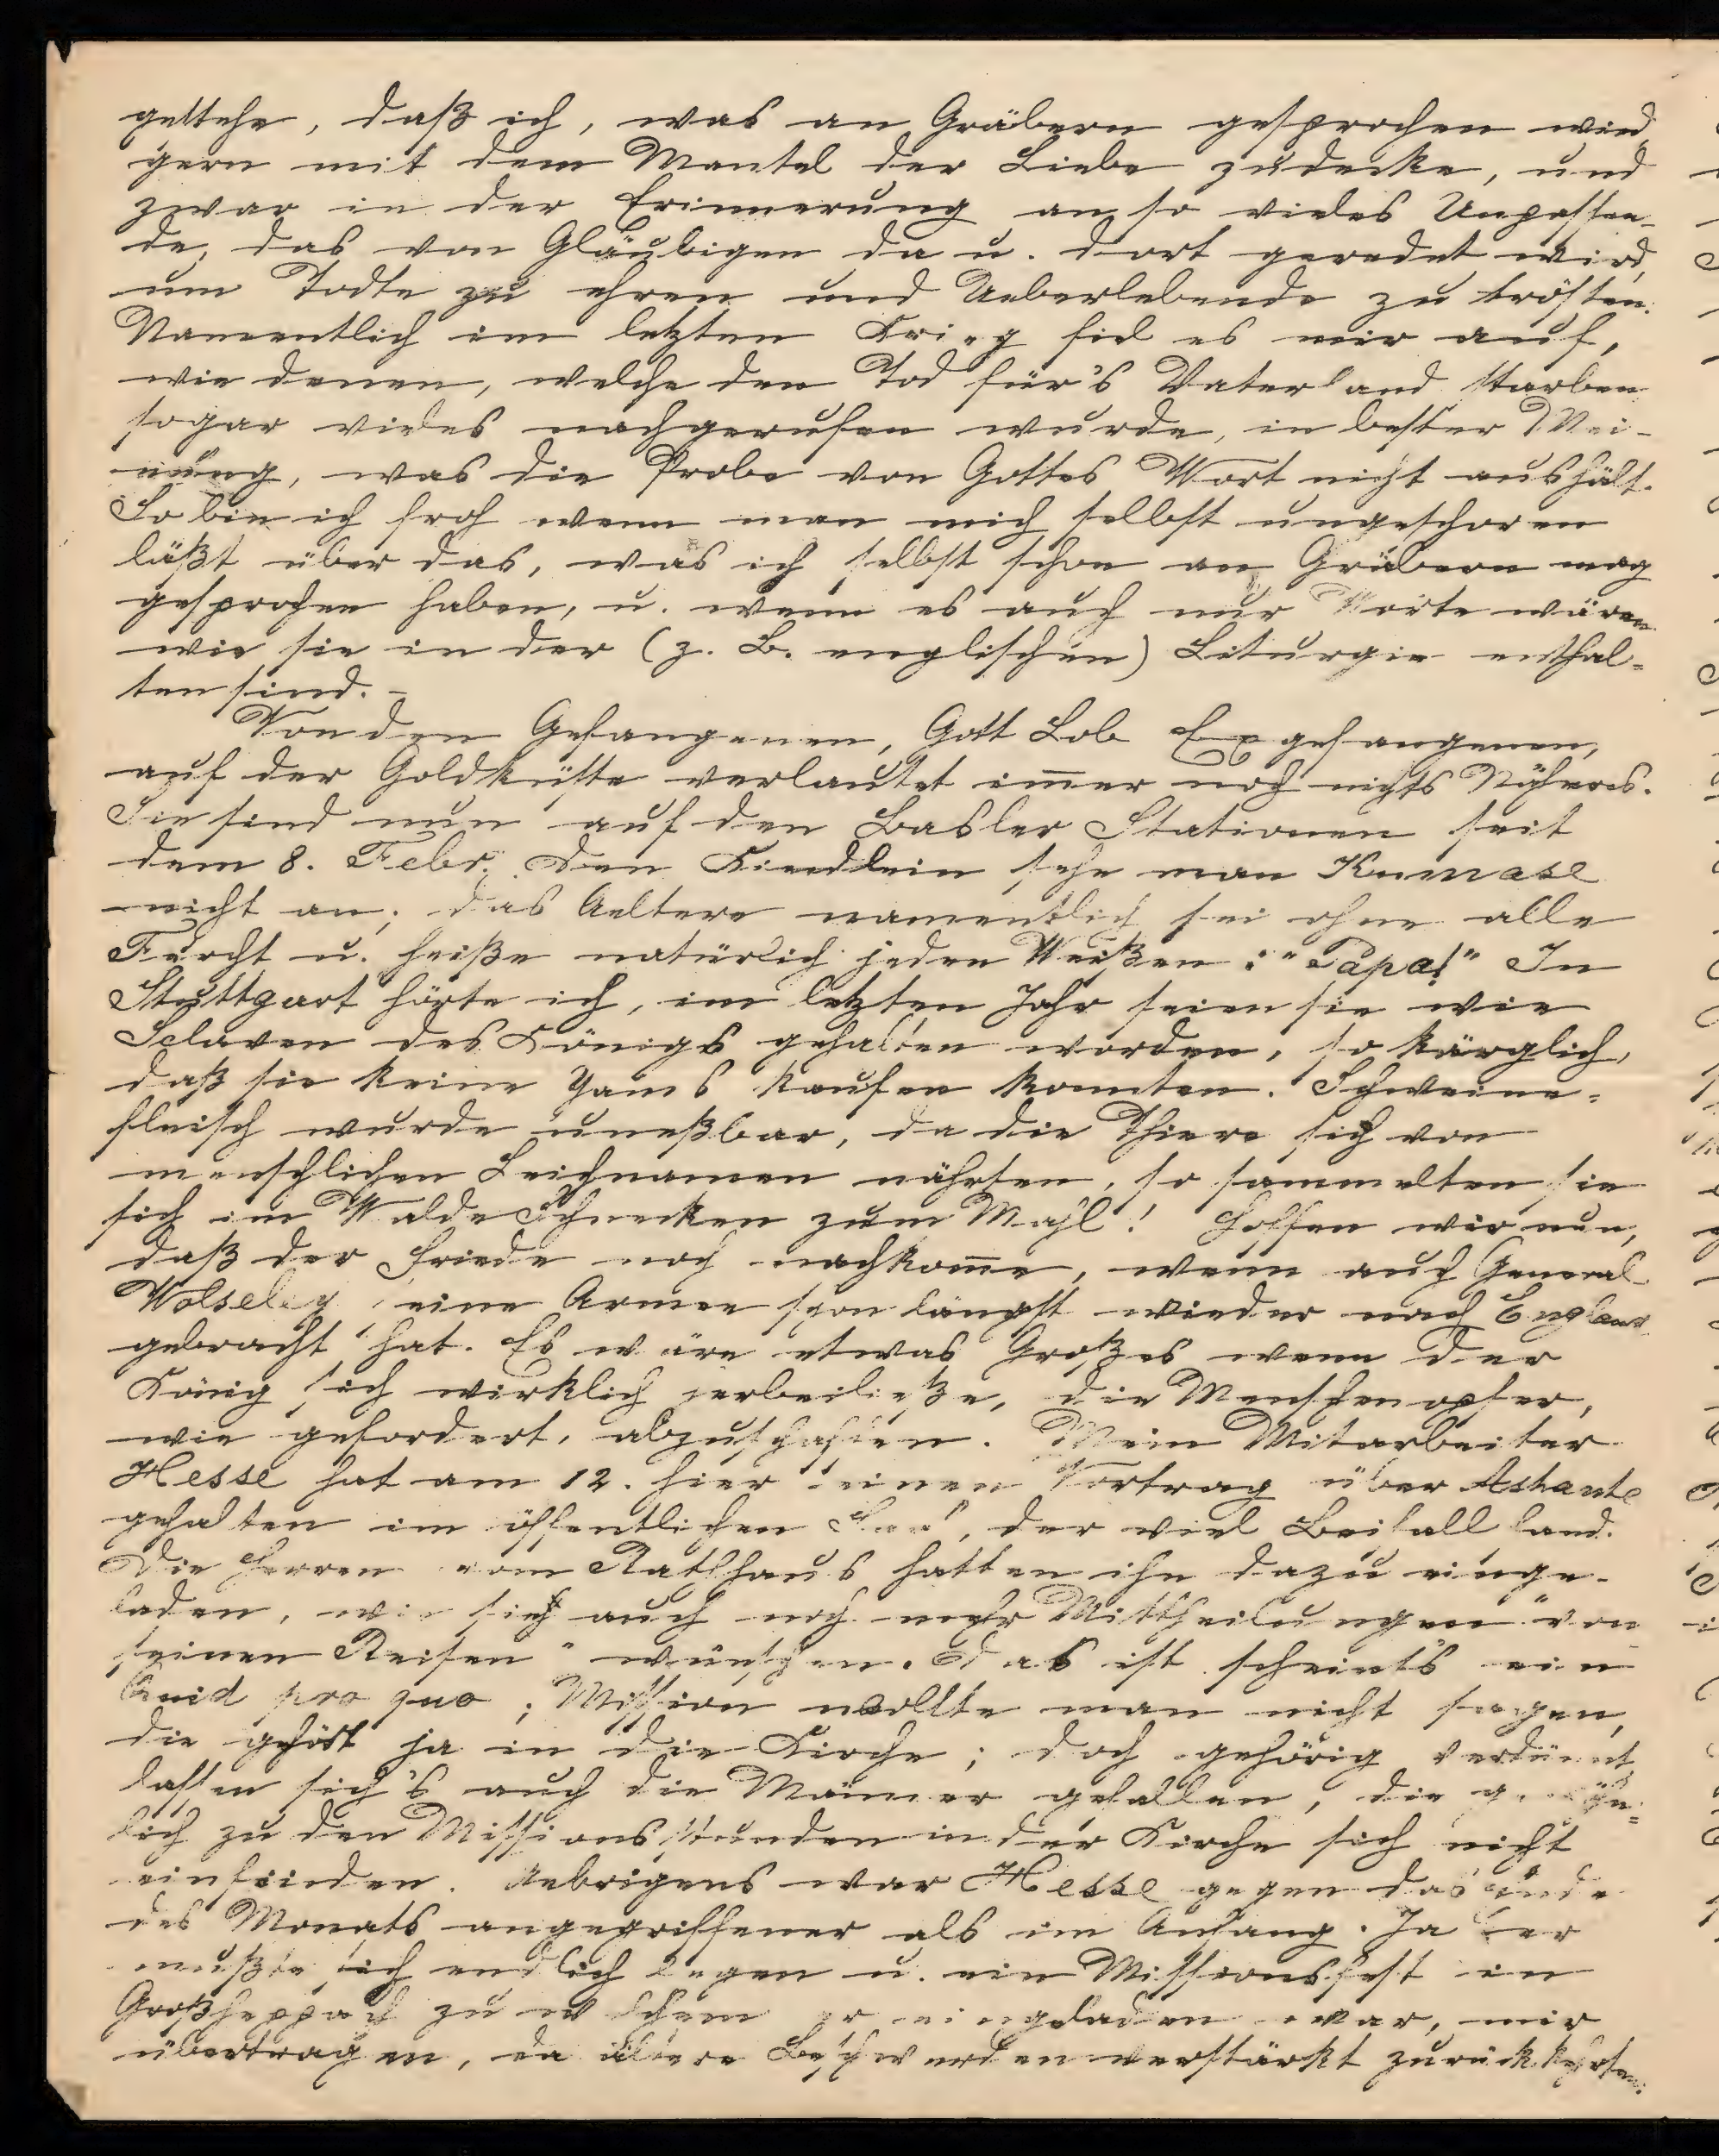 gestehe, daß ich, was an Gräbern gesprochen wird,
gern mit dem Mantel der Liebe zudecke, und
zwar in der Erinnerung an so vieles Unpassen-
de, das von Gläubigen da u. dort geredet wird,
um Todte zu ehren und Ueberlebende zu trösten.
Namentlich im letzten Krieg fiel es mir auf,
wie denen, welche den Tod für's Vaterland starben
sogar vieles nachgerufen wurde, in bester Mei-
nung, was die Probe von Gottes Wort nicht aushält.
So bin ich froh wenn man mich selbst ungeschoren
läßt über das, was ich selbst schon an Gräbern mag
gesprochen haben, u. wenn es auch nur Worte wären
wie sie in der (z. B. englischen) Liturgie enthal-
ten sind. -
Von den Gefangenen, Gott Lob Exgefangenen,
auf der Goldküste verlautet im̅er noch nichts Näheres.
Sie sind nun auf den Basler Stationen seit
dem 8. Febr. Den Kindlein sehe man Kumase
nicht an; das Aeltere namentlich sei ohne alle
Furcht u. heiße natürlich jeden Weißen: "Papa!" In
Stuttgart hörte ich, im letzten Jahr seien sie wie
Sclaven des Königs gehalten worden, so kärglich,
daß sie keine Yams kaufen konnten. Schweine-
fleisch wurde uneßbar, da die Thiere sich von
menschlichen Leichnamen nährten, so sammelten sie
sich im Walde Schnecken zum Mahl! Hoffen wir nun,
daß der Friede noch nachkom̅e, wenn auch General
Wolseley seine Armee schon längst wieder nach England
gebracht hat. Es wäre etwas Großes wenn der
König sich wirklich herbeiließe, die Menschenopfer,
wie gefordert, abzuschaffen. Mein Mitarbeiter
Hesse hat am 12. hier einen Vortrag über Ashante
gehalten im öffentlichen Saal, der viel Beifall fand.
Die Herren vom Rathhaus hatten ihn dazu einge-
laden, wie sie sich auch noch mehr Mittheilungen "von
seinen Reisen" wünschen. Das ist scheint's ein
Quid pro quo; Mission wollte man nicht sagen,
die gehört ja in die Kirche; doch gehörig verdünnt
lassen sich's auch die Männer gefallen, die gewöhn-
lich zu den Missionsstunden in der Kirche sich nicht
einfinden. Uebrigens war Hesse gegen das Ende
des Monats angegriffener als im Anfang. Ja er
mußte sich endlich legen u. ein Missionsfest in
Großheppach zu welchem er eingeladen war, mir
übertragen, da ältere Beschwerden verstärkt zurückkehrten.